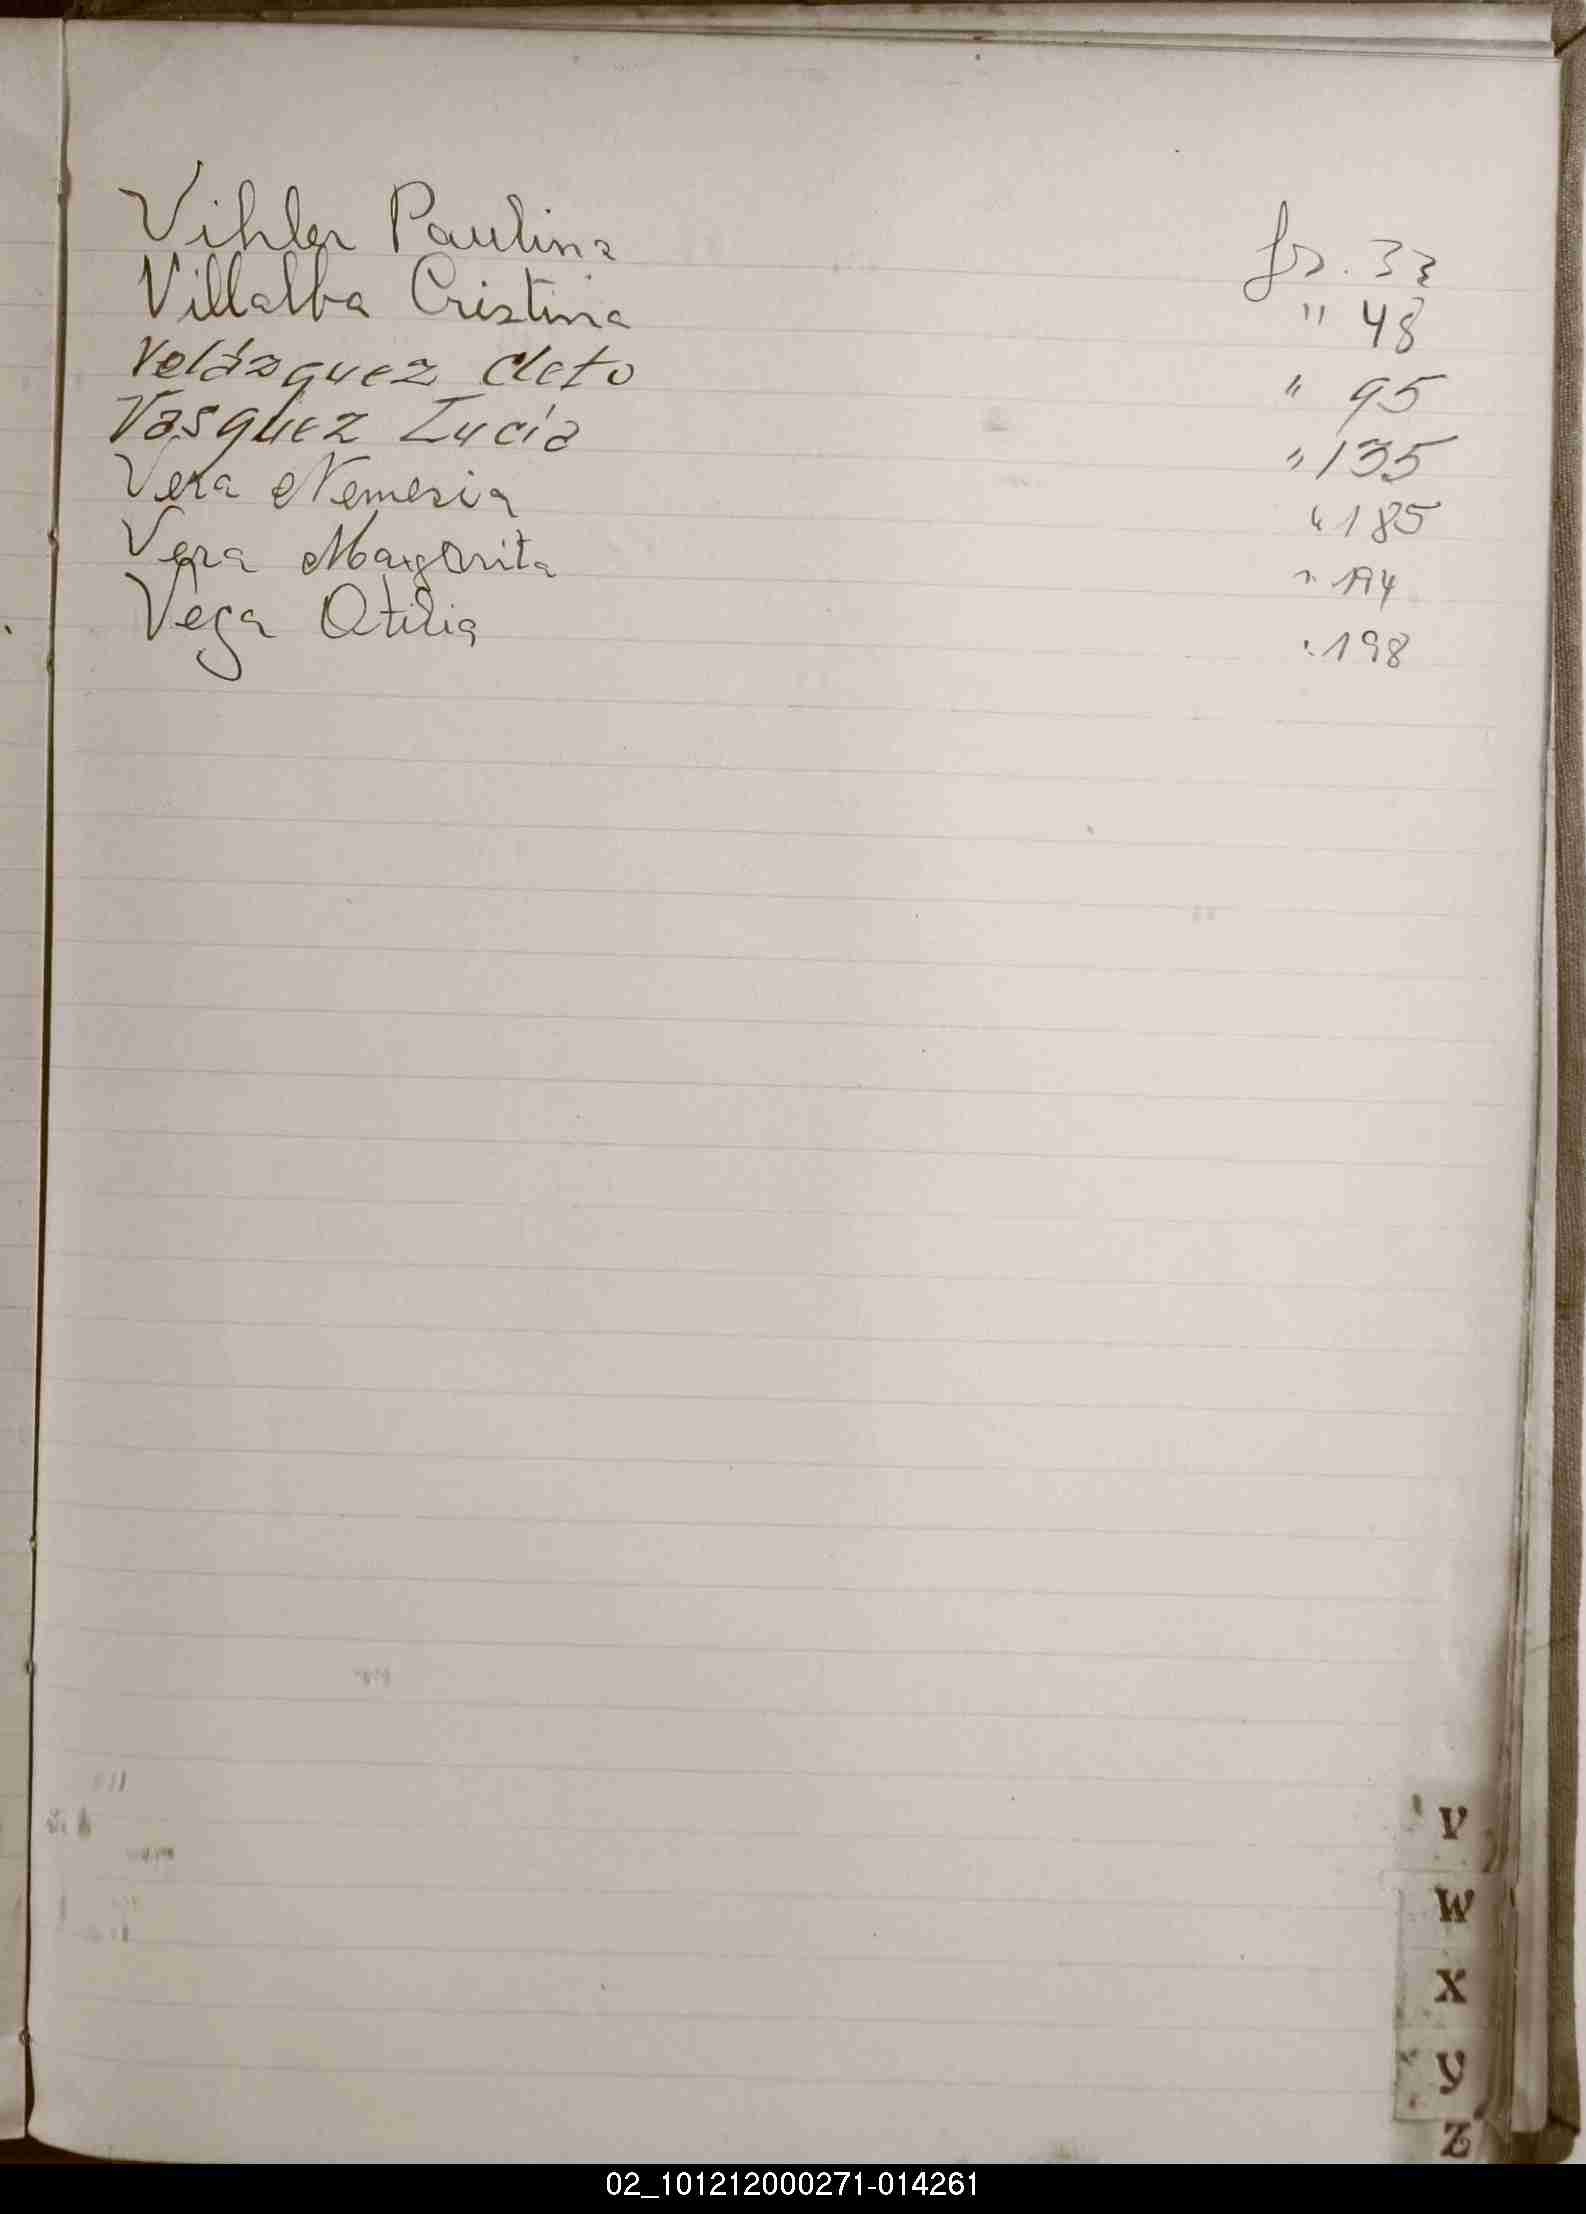 Vihler Paulina fs. 33
Villalba Cristina " 48
Velázquez Cleto " 95
Vasquez Lucía " 135
Vera Nemesia " 185
Vera Margarita " 194
Vega Otilia " 198
V
W
X
Y
Z
02_101212000271-014261